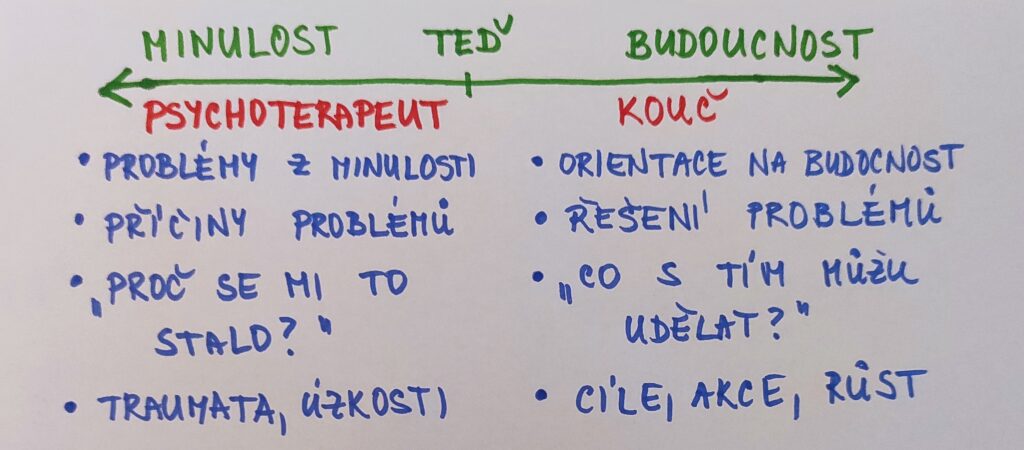 MINULOST TEĎ BUDOUCNOST
PSYCHOTERAPEUT
• PROBLÉMY Z MINULOSTI
• PŘÍČINY PROBLÉMŮ
• „PROČ SE MI TO
STALO?"
• TRAUMATA, ÚZKOSTI
KOUČ
• ORIENTACE NA BUDOCNOST
• ŘEŠENÍ PROBLÉMŮ
• „CO S TÍM MŮŽU
UDĚLAT?"
• CÍLE, AKCE, RŮST